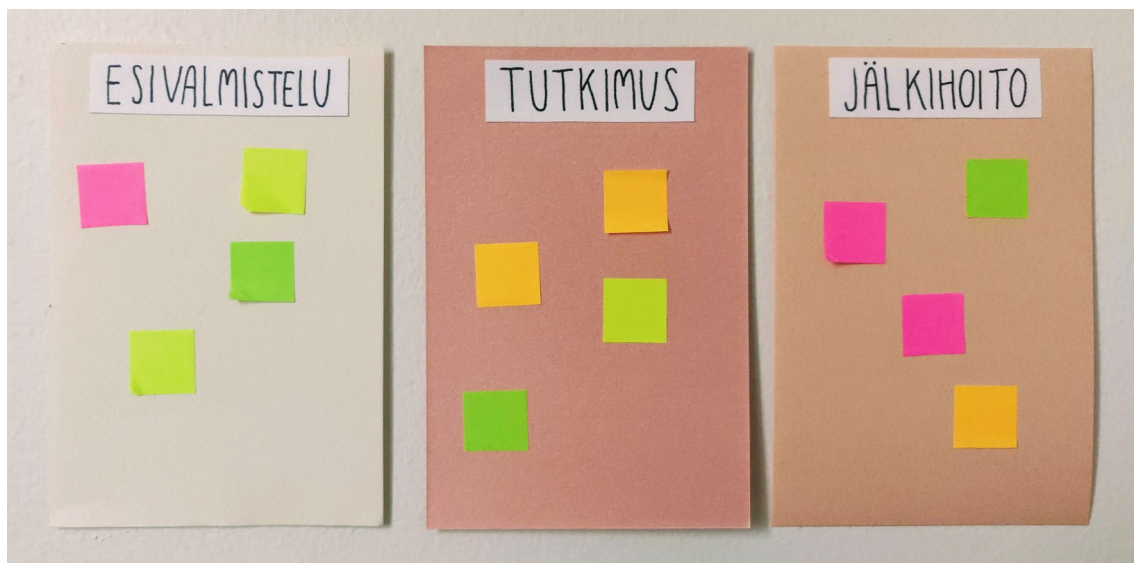 ESIVALMISTELU
TUTKIMUS
JÄLKIHOITO